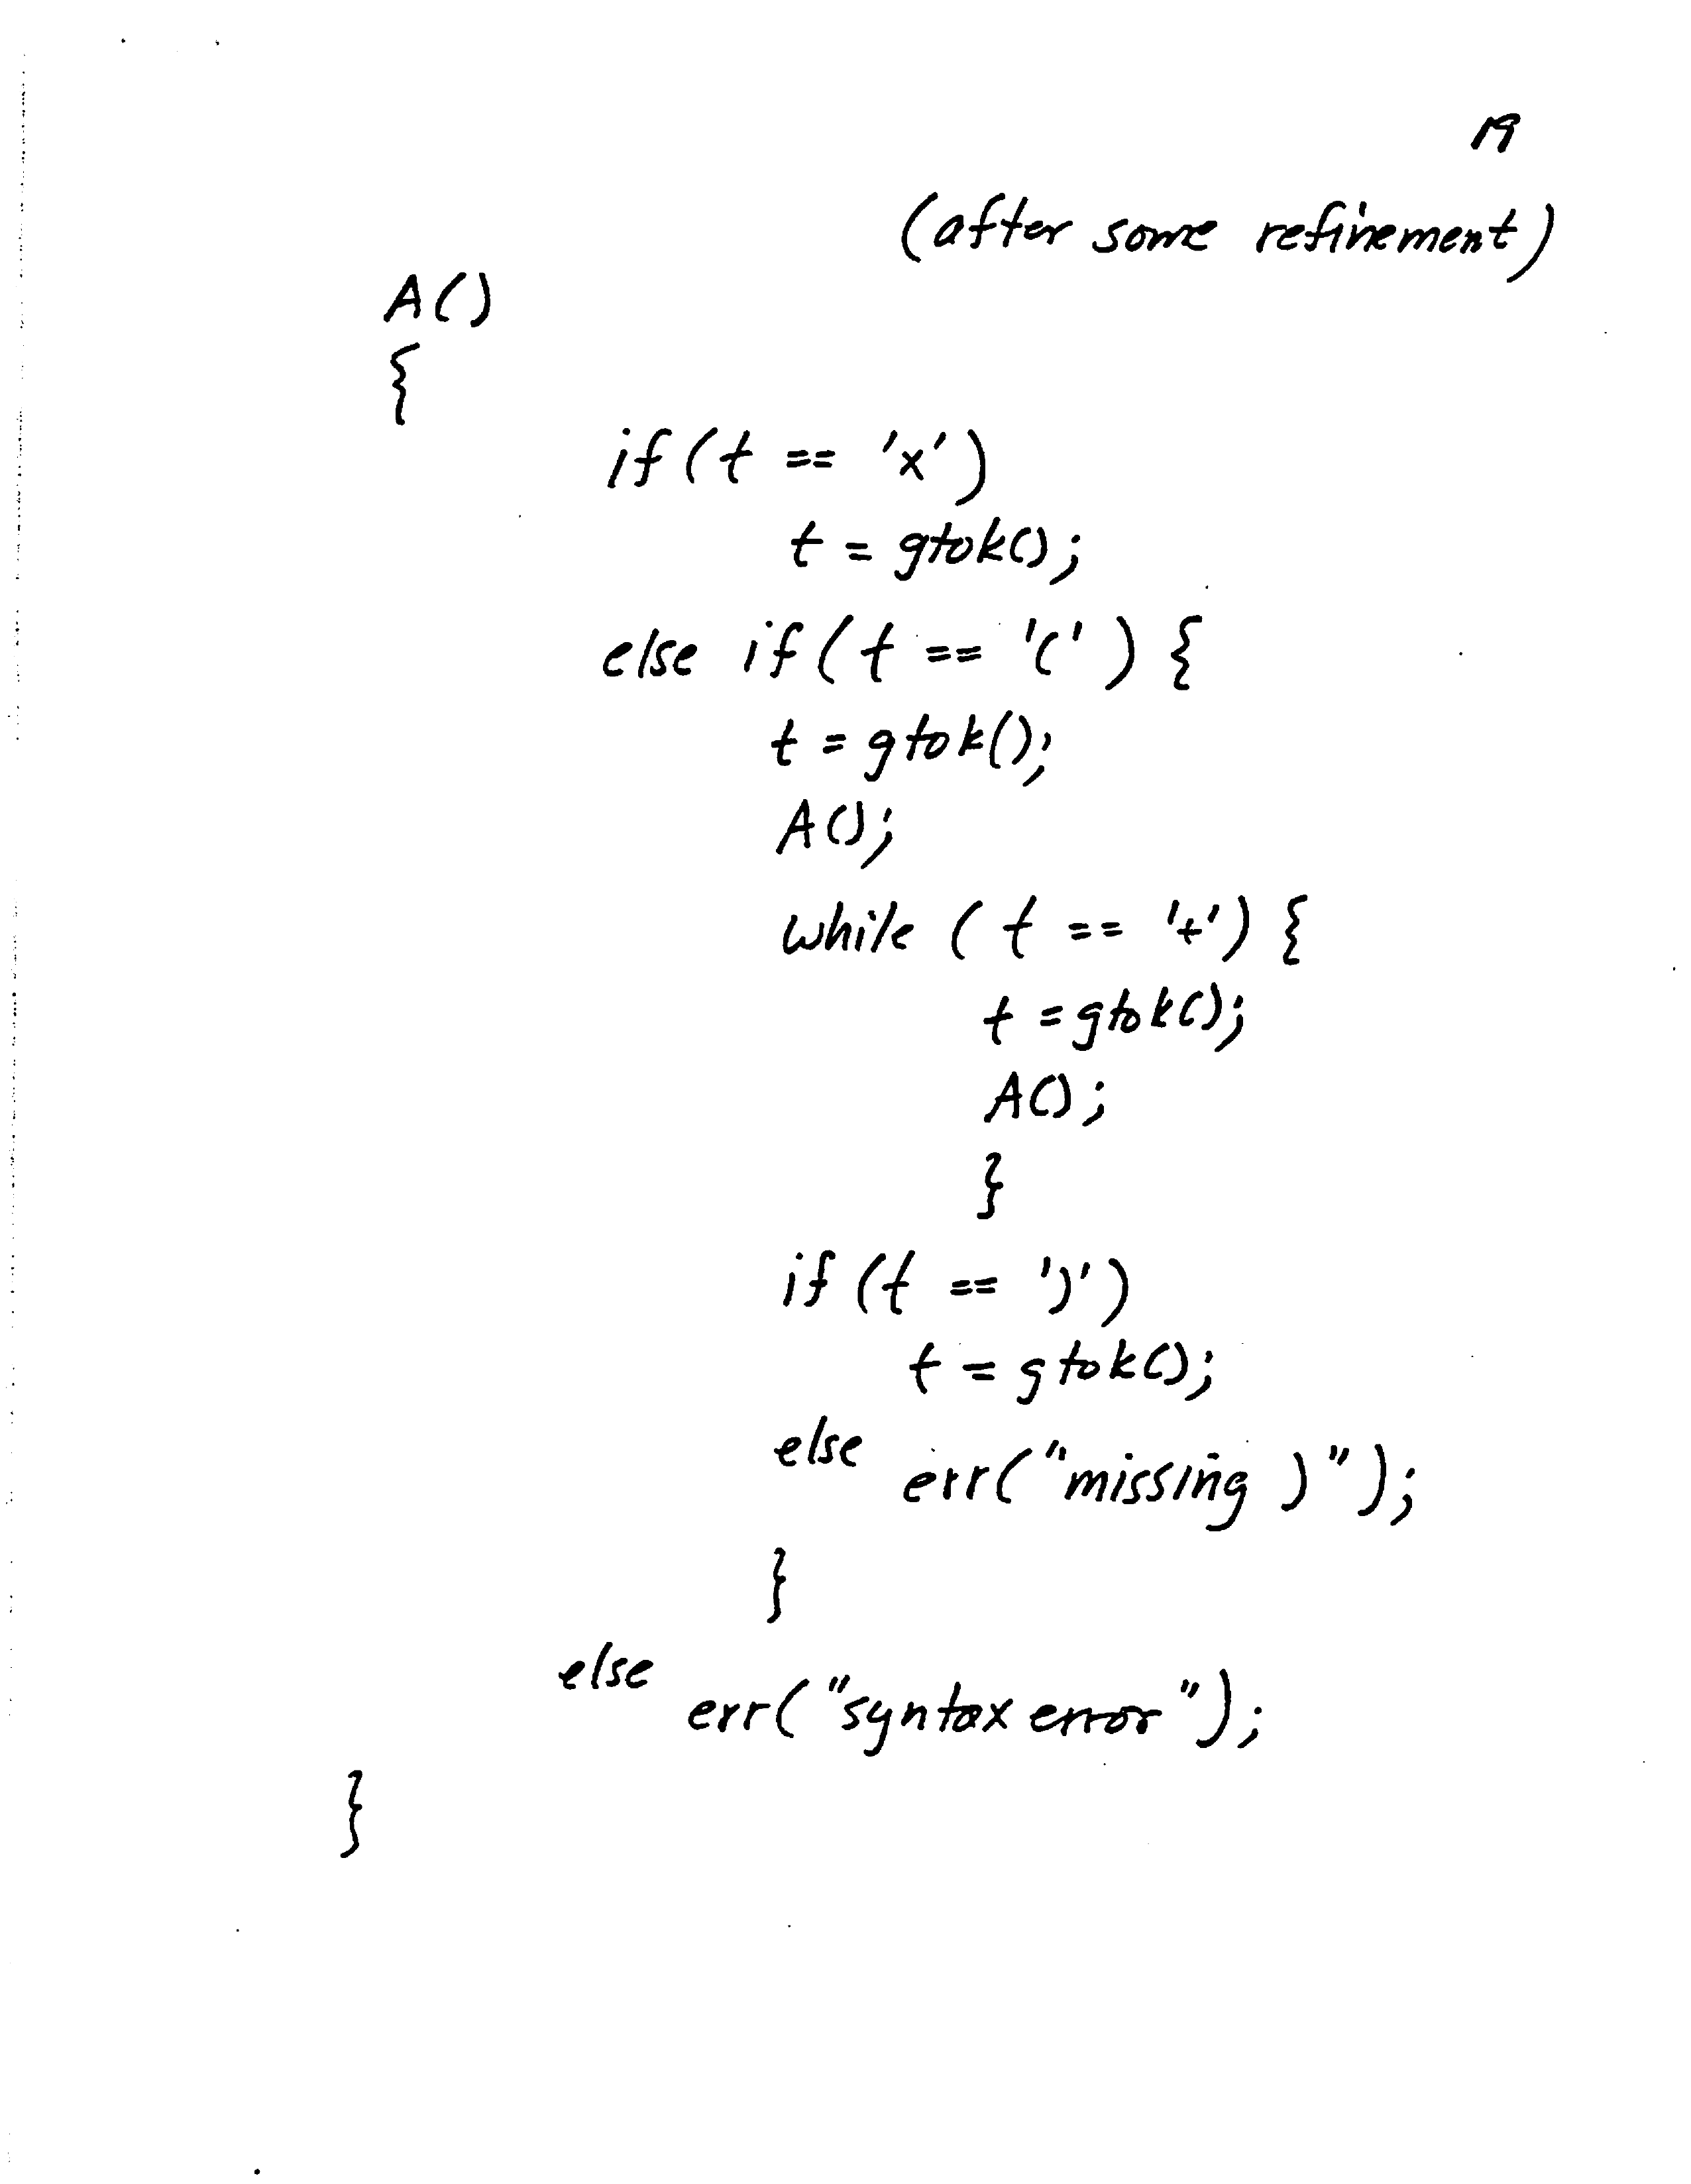 19
(after some refinement)
A()
{
if(t == 'x')
t = gtok();
else if(t == '(') {
t = gtok();
A();
while (t == '+') {
t = gtok();
A();
}
if(t == ')')
t = gtok();
else
err("missing )");
}
else
err("syntax error");
}